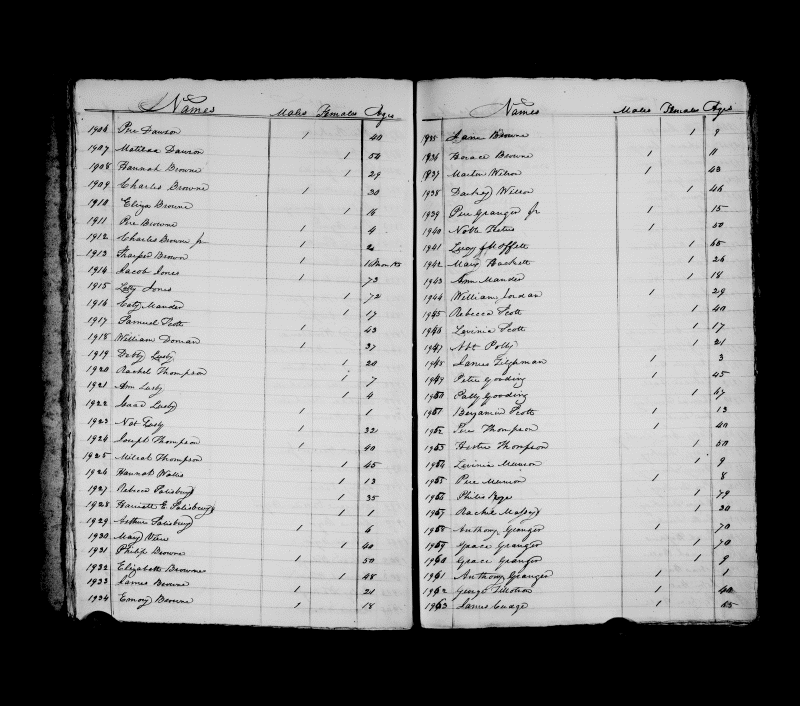 Names Males Females Ages
1906 Pere Dawson 1 40
1907 Matilda Dawson 1 54
1908 Hannah Browne 1 29
1909 Charles Browne 1 30
1910 Eliza Browne 1 16
1911 Pere Browne 1 4
1912 Charles Browne jr 1 2
1913 Sharper Brown 1
1914 Jacob Jones 1 73
1915 Letty Jones 1 72
1916 Caty Mander 1 17
1917 Samuel Scott 1 43
1918 William Doman 1 37
1919 Debby Lusby 1 20
1920 Rachel Thompson 1 7
1921 Ann Lusby 1 4
1922 Isaac Lusby 1 1
1923 Nat Lusby 1 32
1924 Joseph Thompson 1 40
1925 Milcah Thompson 1 45
1926 Hannah Wallis 1 13
1927 Rebecca Salisbury 1 35
1928 Harriett E Salisbury 1 1
1929 Arthur Salisbury 1 6
1930 Mary 1 40
1931 Philip Browne 1 50
1932 Elizabeth Browne 1 48
1933 James Browne 1 21
1934 Emory Browne 1 18
Names Males Females Ages
1935 Jane Browne 1 9
1936 Horace Browne 1 11
1937 Wilson 1 43
1938 Wilson 1 46
1939 Pere Granger jr 1 15
1940 1 50
1941 Lucy 1 65
1942 Mary Hackett 1 26
1943 Ann Mander 1 18
1944 William Jordan 1 29
1945 Rebecca Scott 1 40
1946 Levinia Scott 1 17
1947 Polly 1 21
1948 James Tilghman 1 3
1949 Peter Gooding 1 45
1950 Patty Gooding 1 67
1951 Benjamin Scott 1 13
1952 Pere Thompson 1 40
1953 Hester Thompson 1 50
1954 Levinia Munson 1 9
1955 Pere Munson 1 8
1956 Philis 1 79
1957 Massey 1 30
1958 Anthony Granger 1 70
1959 Grace Granger 1 70
1960 Grace Granger 1 9
1961 Anthony Granger 1 1
1962 George 1 40
1963 James 1 65